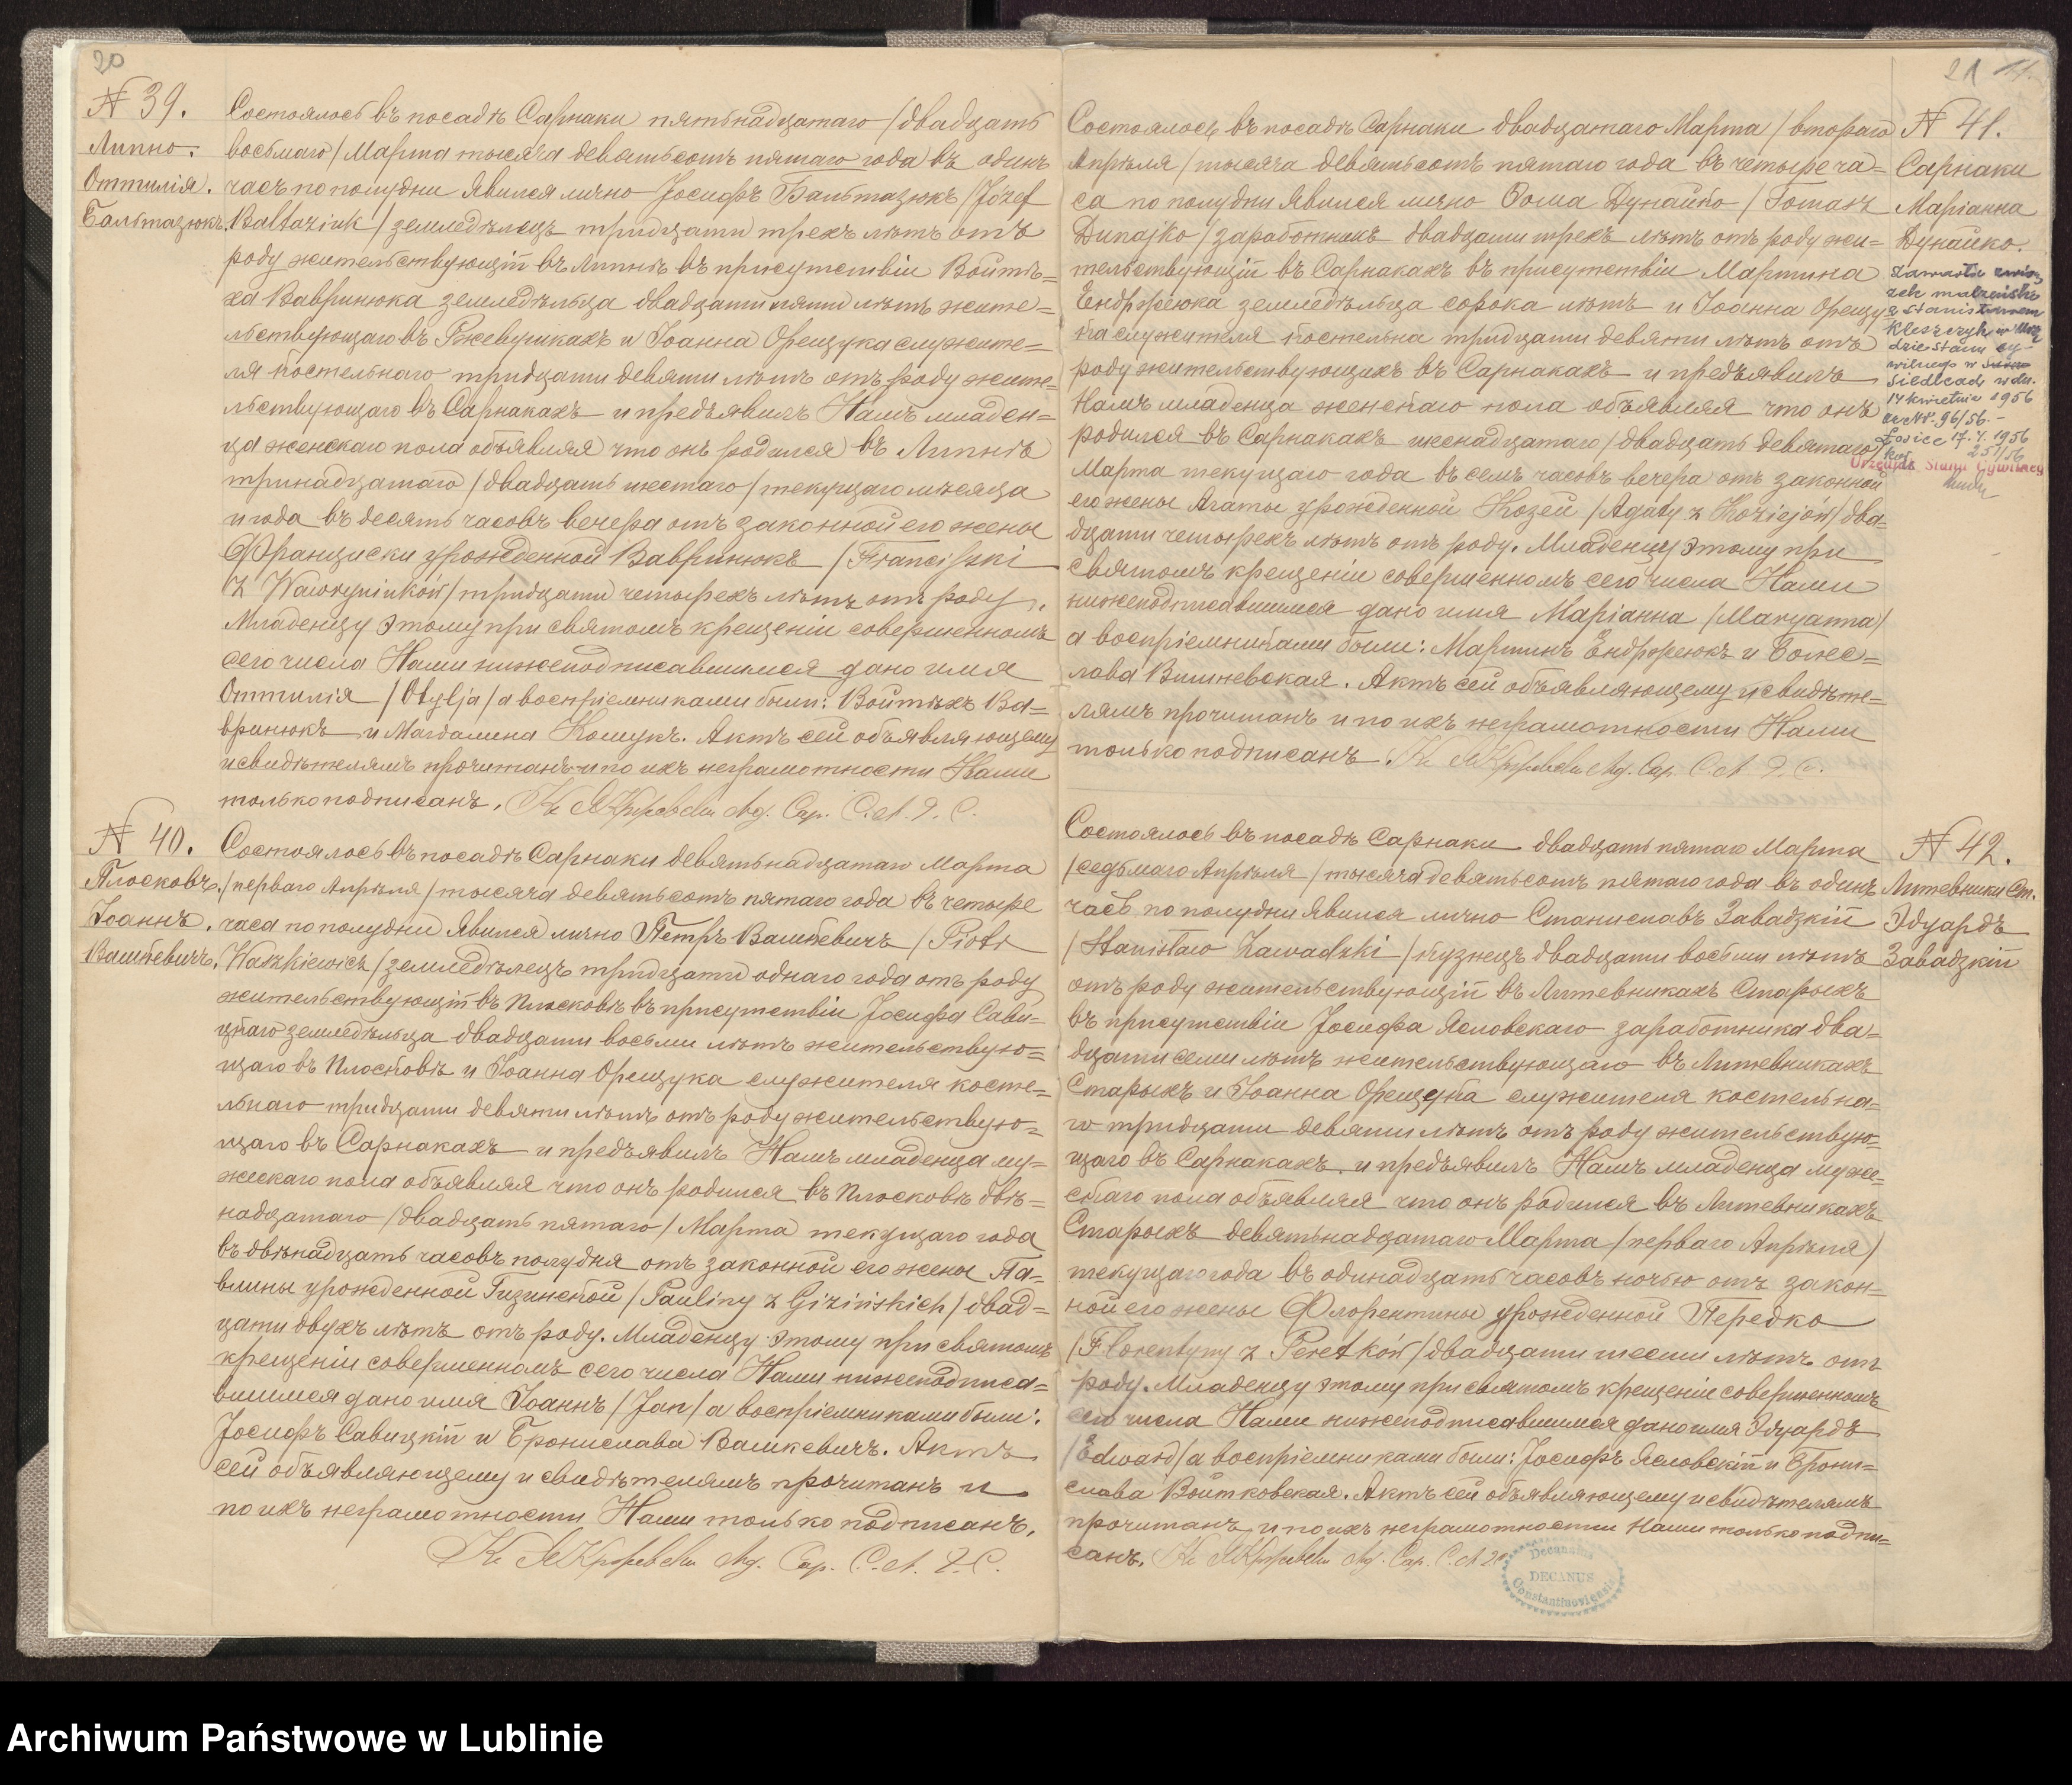 20
N 39.
Липно.
Оттилія.
Бальтазюкъ.
Состоялось въ посадѣ Сарнаки пятьнадцатаго /двадцать
восьмаго/ Марта тысяча девятьсотъ пятаго года въ одинъ
часъ по полудни явился лично Іосифъ Бальтазюкъ /Józef
Baltaziuk/ земледѣлецъ тридцати трехъ лѣтъ отъ
роду жительствующій въ Липнѣ въ присутствіи Войтѣ=
ха Вавринюка земледѣльца двадцати пяти лѣтъ жите=
льствующаго въ Ржевушкахъ и Іоанна Орещука служите=
ля костельнаго тридцати девяти лѣтъ отъ роду жите=
льствующаго въ Сарнакахъ и предъявилъ Намъ младен=
ца женскаго пола объявляя что онъ родился въ Липнѣ
тринадцатаго /двадцать шестаго/ текущаго мѣсяца
и года въ десять часовъ вечера отъ законной его жены
Франциски урожденной Вавринюкъ /Franciszki
z Wawryniuków/ тридцати четырехъ лѣтъ отъ роду.
Младенцу этому при святомъ крещеніи совершенномъ
сего числа Нами нижеподписавшимся дано имя
Оттилія /Otylja/ а воспріемниками были: Войтѣхъ Ва=
вринюкъ и Магдалина Кошукъ. Актъ сей объявляющему
и свидѣтелямъ прочитанъ и по ихъ неграмотности Нами
только подписанъ.
N 40.
Плосковъ.
Іоаннъ.
Вашкевичъ.
Состоялось въ посадѣ Сарнаки девятьнадцатаго Марта
/перваго Апрѣля/ тысяча девятьсотъ пятаго года въ четыре
часа по полудни явился лично Петръ Вашкевичъ /Piotr
Waszkiewicz/ земледѣлецъ тридцати однаго года отъ роду
жительствующій въ Плосковѣ въ присутствіи Іосифа Сави=
цкаго земледѣльца двадцати восьми лѣтъ жительствую=
щаго въ Плосковѣ и Іоанна Орещука служителя косте=
льнаго тридцати девяти лѣтъ отъ роду жительствую=
щаго въ Сарнакахъ и предъявилъ Намъ младенца му=
жескаго пола объявляя что онъ родился въ Плосковѣ двѣ=
надцатаго /двадцать пятаго/ Марта текущаго года
въ двѣнадцать часовъ полудня отъ законной его жены Па=
влины урожденной Гизинской /Pauliny z Gizińskich/ двад=
цати двухъ лѣтъ отъ роду. Младенцу этому при святомъ
крещеніи совершенномъ сего числа Нами нижеподписа=
вшимся дано имя Іоаннъ /Jan/ а воспріемниками были:
Іосифъ Савицкій и Бронислава Вашкевичъ. Актъ
сей объявляющему и свидѣтелямъ прочитанъ и
по ихъ неграмотности Нами только подписанъ.
21
N 41.
Сарнаки
Маріанна
Дунайко.
Состоялось въ посадѣ Сарнаки двадцатаго Марта /втораго
Апрѣля/ тысяча девятьсотъ пятаго года въ четыре ча=
са по полудни явился лично Ѳома Дунайко /Tomasz
Dunajko/ заработникъ двадцати трехъ лѣтъ отъ роду жи=
тельствующій въ Сарнакахъ въ присутствіи Мартина
Ендрфеюка земледѣльца сорока лѣтъ и Іоанна Орещу=
ка служителя костельна тридцати девяти лѣтъ отъ
роду жительствующихъ въ Сарнакахъ и предъявилъ
Намъ младенца женскаго пола объявляя что онъ
родился въ Сарнакахъ шеснадцатаго /двадцать девятаго/
Марта текущаго года въ семь часовъ вечера отъ законной
его жены Агаты урожденной Козей /Agaty z Koziejów/ два=
дцати четырехъ лѣтъ отъ роду. Младенцу этому при
святомъ крещеніи совершенномъ сего числа Нами
нижеподписавшимся дано имя Маріанна /Maryanna/
а воспріемниками были: Мартинъ Ендрфеюкъ и Болес=
лава Вишневская. Актъ сей объявляющему и свидѣте=
лямъ прочитанъ и по ихъ неграмотности Нами
только подписанъ.
zawarła zwią
zek małżeński
z Stanisławem
Kleszczyk w Urzę
dzie stanu cy-
wilnego w
Siedlcach w dn.
14 kwietnia 1956
akt Nr. 96/56.-
Łosice 17.4.1956
257/56
Urzędu Stanu Cywilnego
N 42.
Литевники Ст.
Эдуардъ
Завадзкій
Состоялось въ посадѣ Сарнаки двадцать пятаго Марта
/седьмаго Апрѣля/ тысяча девятьсотъ пятаго года въ одинъ
часъ по полудни явился лично Станиславъ Завадзкій
/Stanisław Zawadzki/ кузнецъ двадцати восьми лѣтъ
отъ роду жительствующій въ Литевникахъ Старыхъ
въ присутствіи Іосифа Ясловскаго заработника два=
дцати семи лѣтъ жительствующаго въ Литевникахъ
Старыхъ и Іоанна Орещука служителя костельна=
го тридцати девяти лѣтъ отъ роду жительствую=
щаго въ Сарнакахъ и предъявилъ Намъ младенца муже=
скаго пола объявляя что онъ родился въ Литевникахъ
Старыхъ девятьнадцатаго Марта /перваго Апрѣля/
текущаго года въ одинадцать часовъ ночью отъ закон=
ной его жены Флорентины урожденной Передко
/Florentyny z Peretków/ двадцати шести лѣтъ отъ
роду. Младенцу этому при святомъ крещеніи совершенномъ
сего числа Нами нижеподписавшимся дано имя Эдуардъ
/Edward/ а воспріемниками были: Іосифъ Ясловскій и Брони=
слава Войтковская. Актъ сей объявляющему и свидѣтелямъ
прочитанъ и по ихъ неграмотности Нами только подпи=
санъ.
Decanatus
DECANUS
Constantinoviensis
Archiwum Państwowe w Lublinie